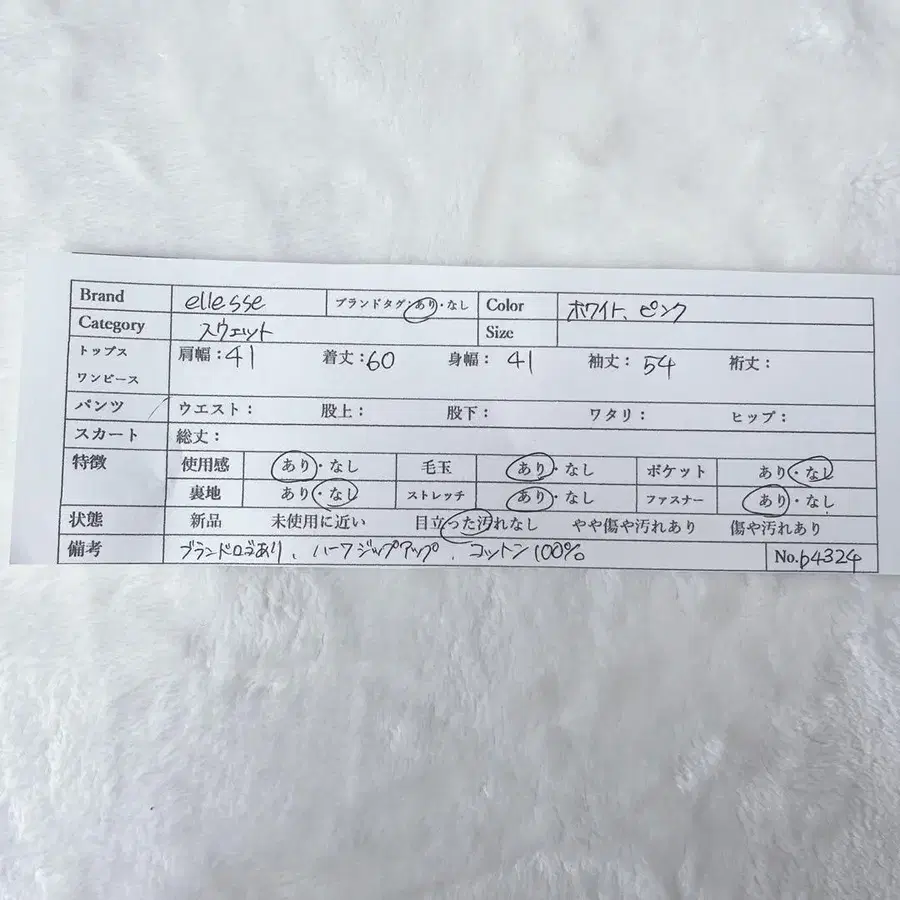 Brand ellesse ブランドタグ・あり・なし Color ホワイト、ピンク
Category スウェット Size
トップス ワンピース 肩幅：41 着丈：60 身幅：41 袖丈：54 裄丈：
パンツ ウエスト： 股上： 股下： ワタリ： ヒップ：
スカート 総丈：
特徴 使用感 あり・なし 毛玉 あり・なし ポケット あり・なし
裏地 あり・なし ストレッチ あり・なし ファスナー あり・なし
状態 新品 未使用に近い 目立った汚れなし やや傷や汚れあり 傷や汚れあり
備考 ブランドロゴあり、ハーフジップアップ、コットン100% No.64324